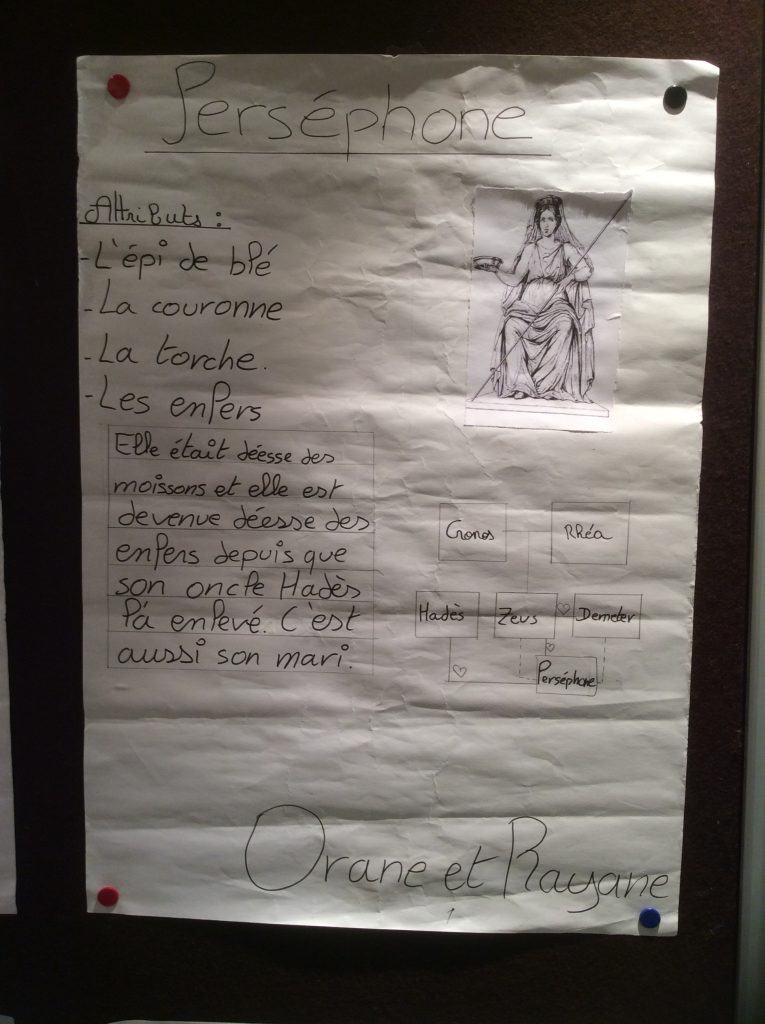 Perséphone
Attributs :
- L'épi de blé
- La couronne
- La torche.
- Les enfers
Elle était déesse des
moissons et elle est
devenue déesse des
enfers depuis que
son oncle Hadès
l'a enlevé. C'est
aussi son mari.
Cronos Rhéa
Hadès Zeus Demeter
Perséphone
Orane et Rayane
1